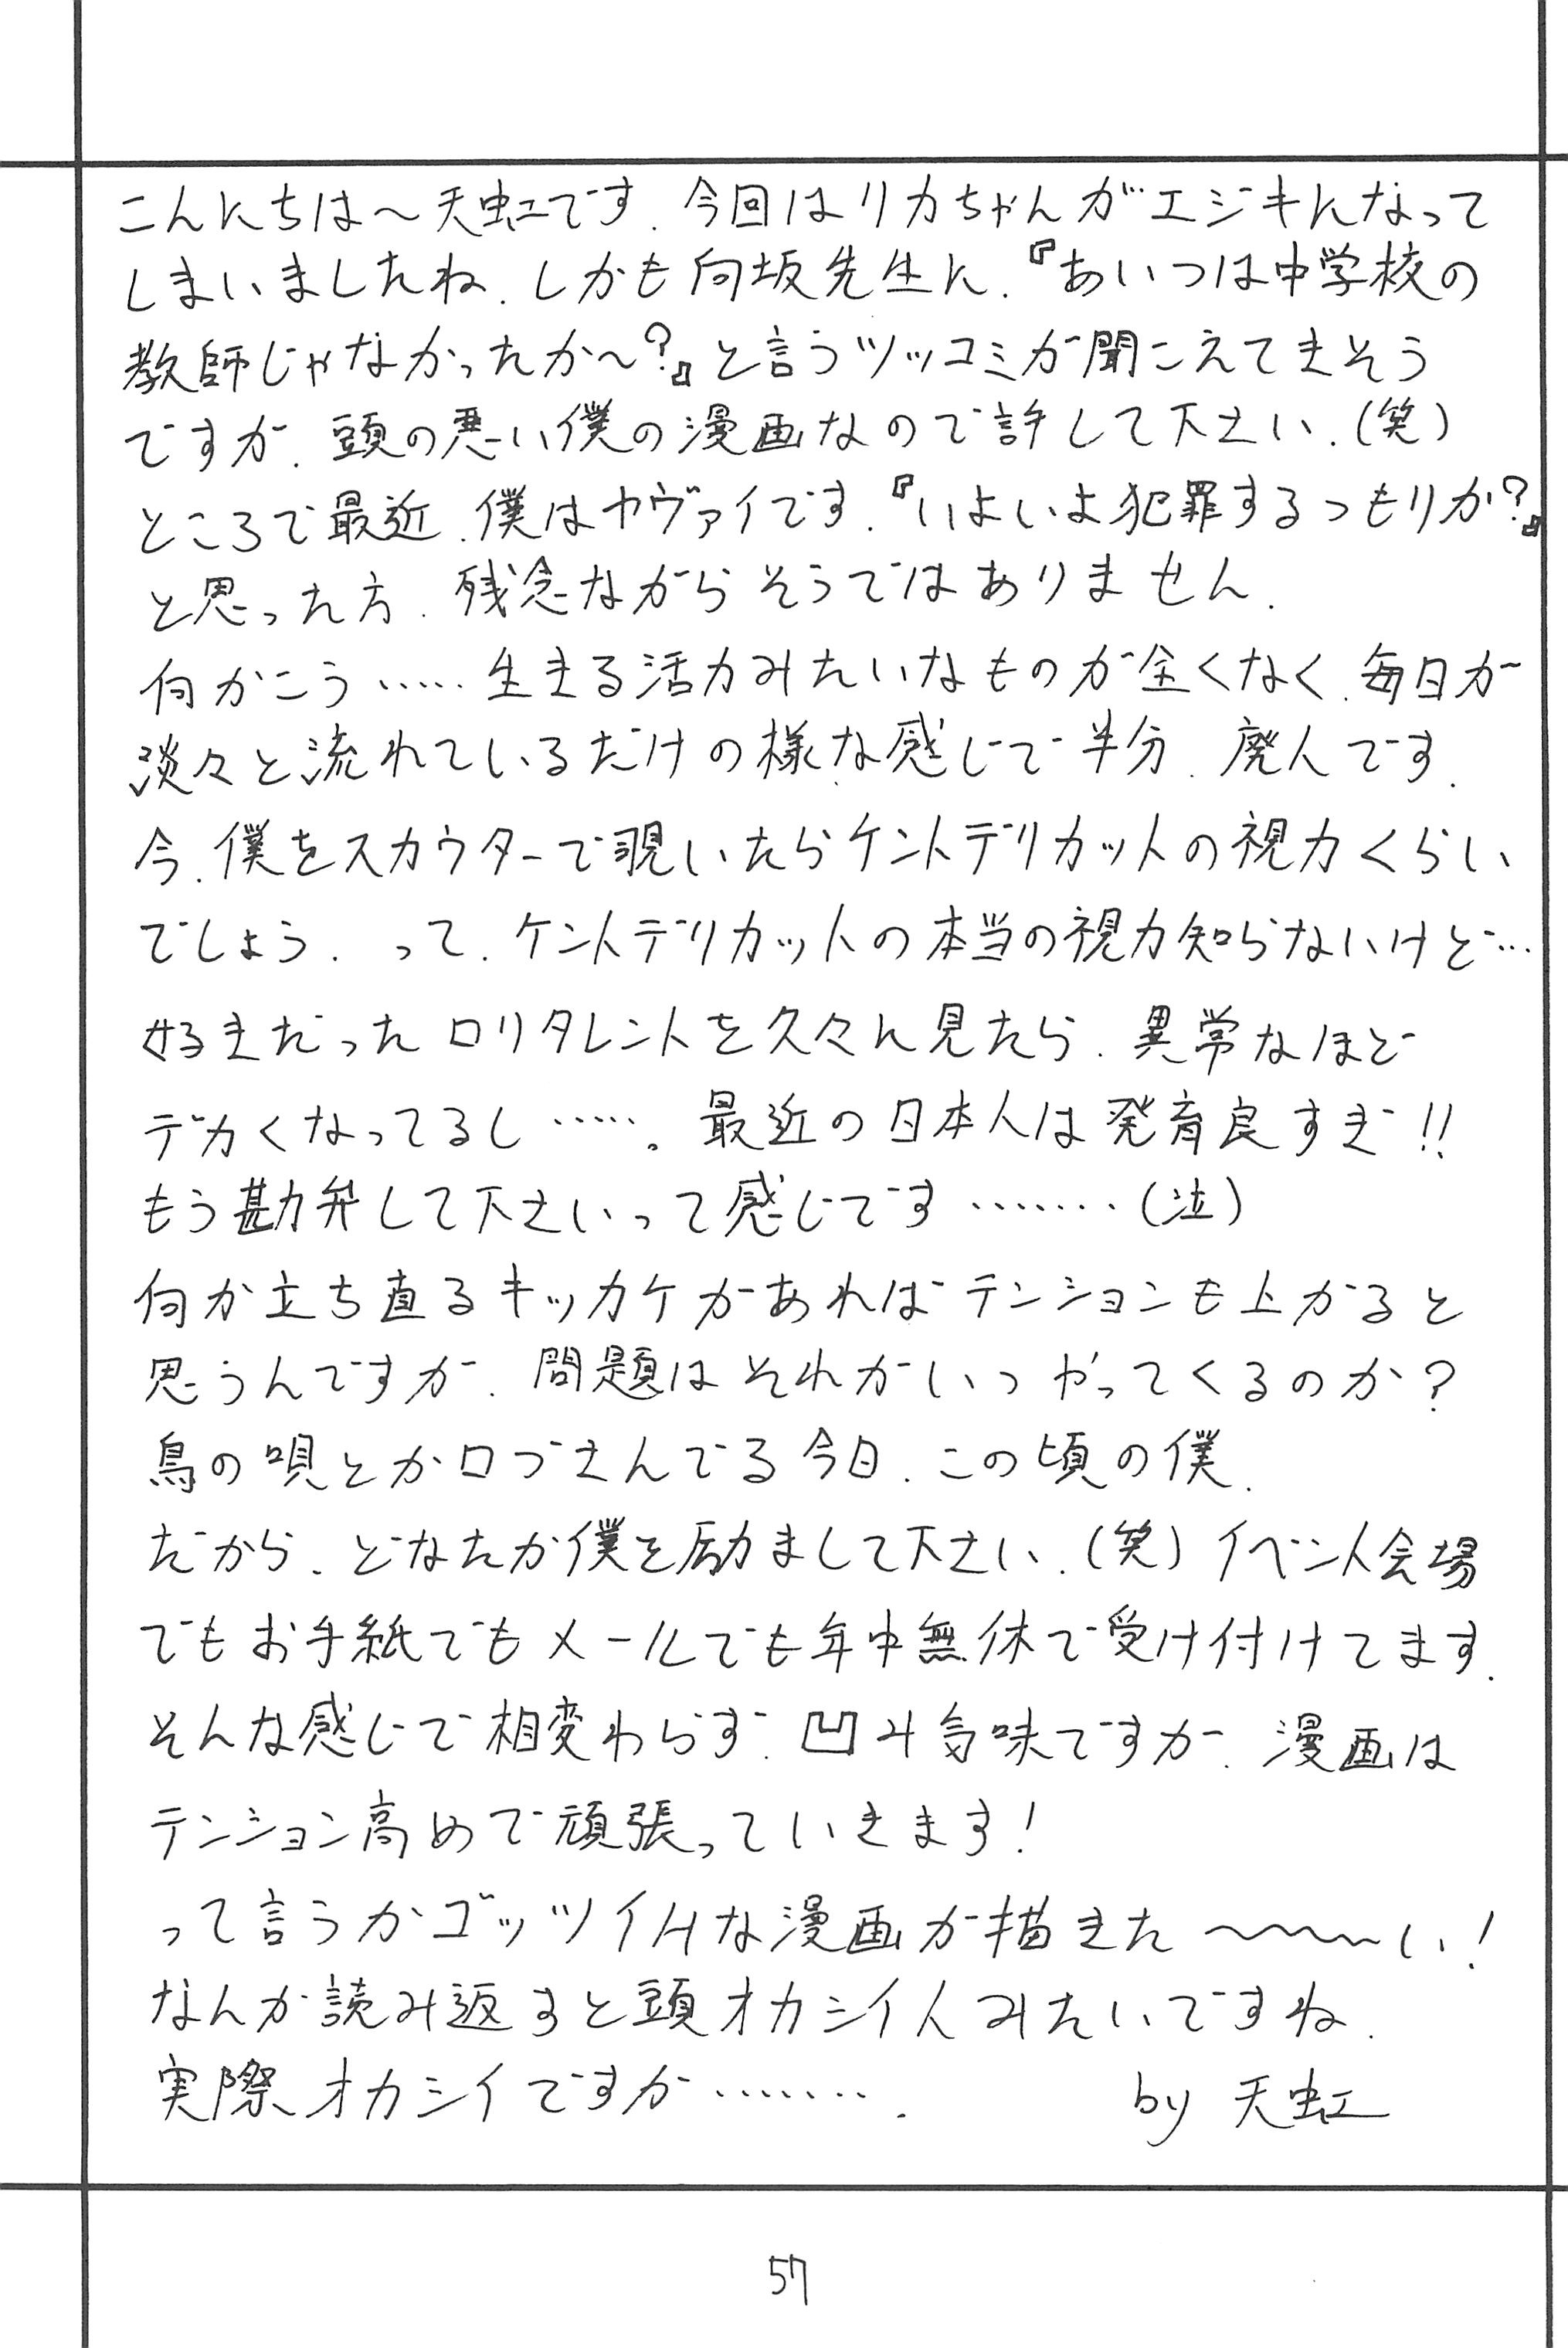 こんにちは～天虹です。今回はリカちゃんがエジキになって
しまいましたね。しかも向坂先生に。『あいつは中学校の
教師じゃなかったか～？』と言うツッコミが聞こえてきそう
ですが、頭の悪い僕の漫画なので許して下さい。(笑)
ところで最近、僕はヤヴァイです。『いよいよ犯罪するつもりか？』
と思った方、残念ながらそうではありません。
何かこう……生きる活力みたいなものが全くなく、毎日が
淡々と流れているだけの様な感じで半分、廃人です。
今、僕をスカウターで覗いたらケントデリカットの視力くらい
でしょう。って、ケントデリカットの本当の視力知らないけど…
好きだったロリタレントを久々に見たら、異常なほど
デカくなってるし……。最近の日本人は発育良すぎ!!
もう勘弁して下さいって感じです………(泣)
何か立ち直るキッカケがあればテンションも上がると
思うんですが、問題はそれがいつやってくるのか？
鳥の唄とか口づさんでる今日、この頃の僕。
だから、どなたか僕を励まして下さい。(笑)イベント会場
でもお手紙でもメールでも年中無休で受け付けてます。
そんな感じで相変わらず、凹み気味ですが、漫画は
テンション高めで頑張っていきます！
って言うかゴッツイHな漫画が描きた～～～い！
なんか読み返すと頭オカシイ人みたいですね。
実際オカシイですが………。
by 天虹
57